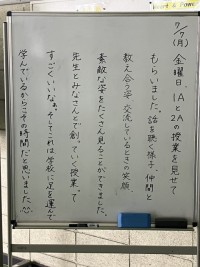 7/7(月) 金曜日、1Aと2Aの授業を見せて
もらいました。話を聴く様子、仲間と
教え合う姿、交流しているときの笑顔、
素敵な姿をたくさん見ることができました。
先生とみなさんとで創っていく授業って
すごくいいなぁ。そしてこれは学校に足を運んで
学んでいるからこその時間だと思いました。